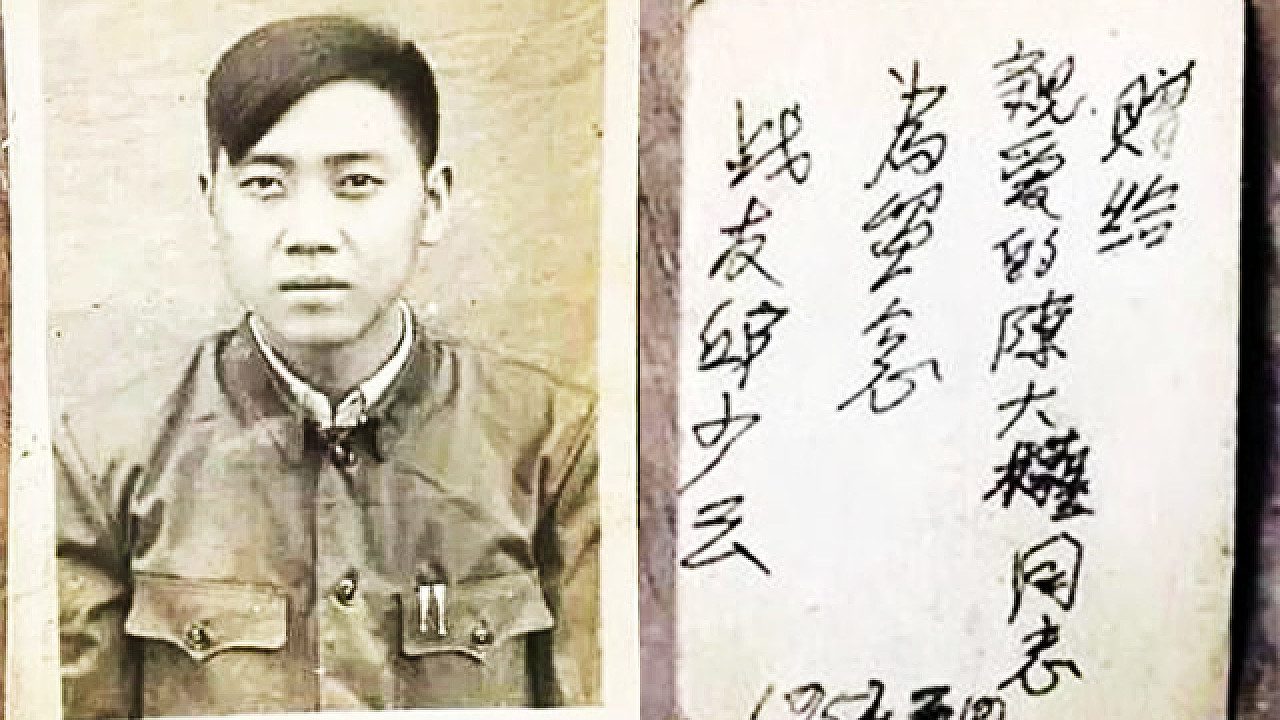 赠给
親愛的陳大同志
為留念
战友邱少云
1952